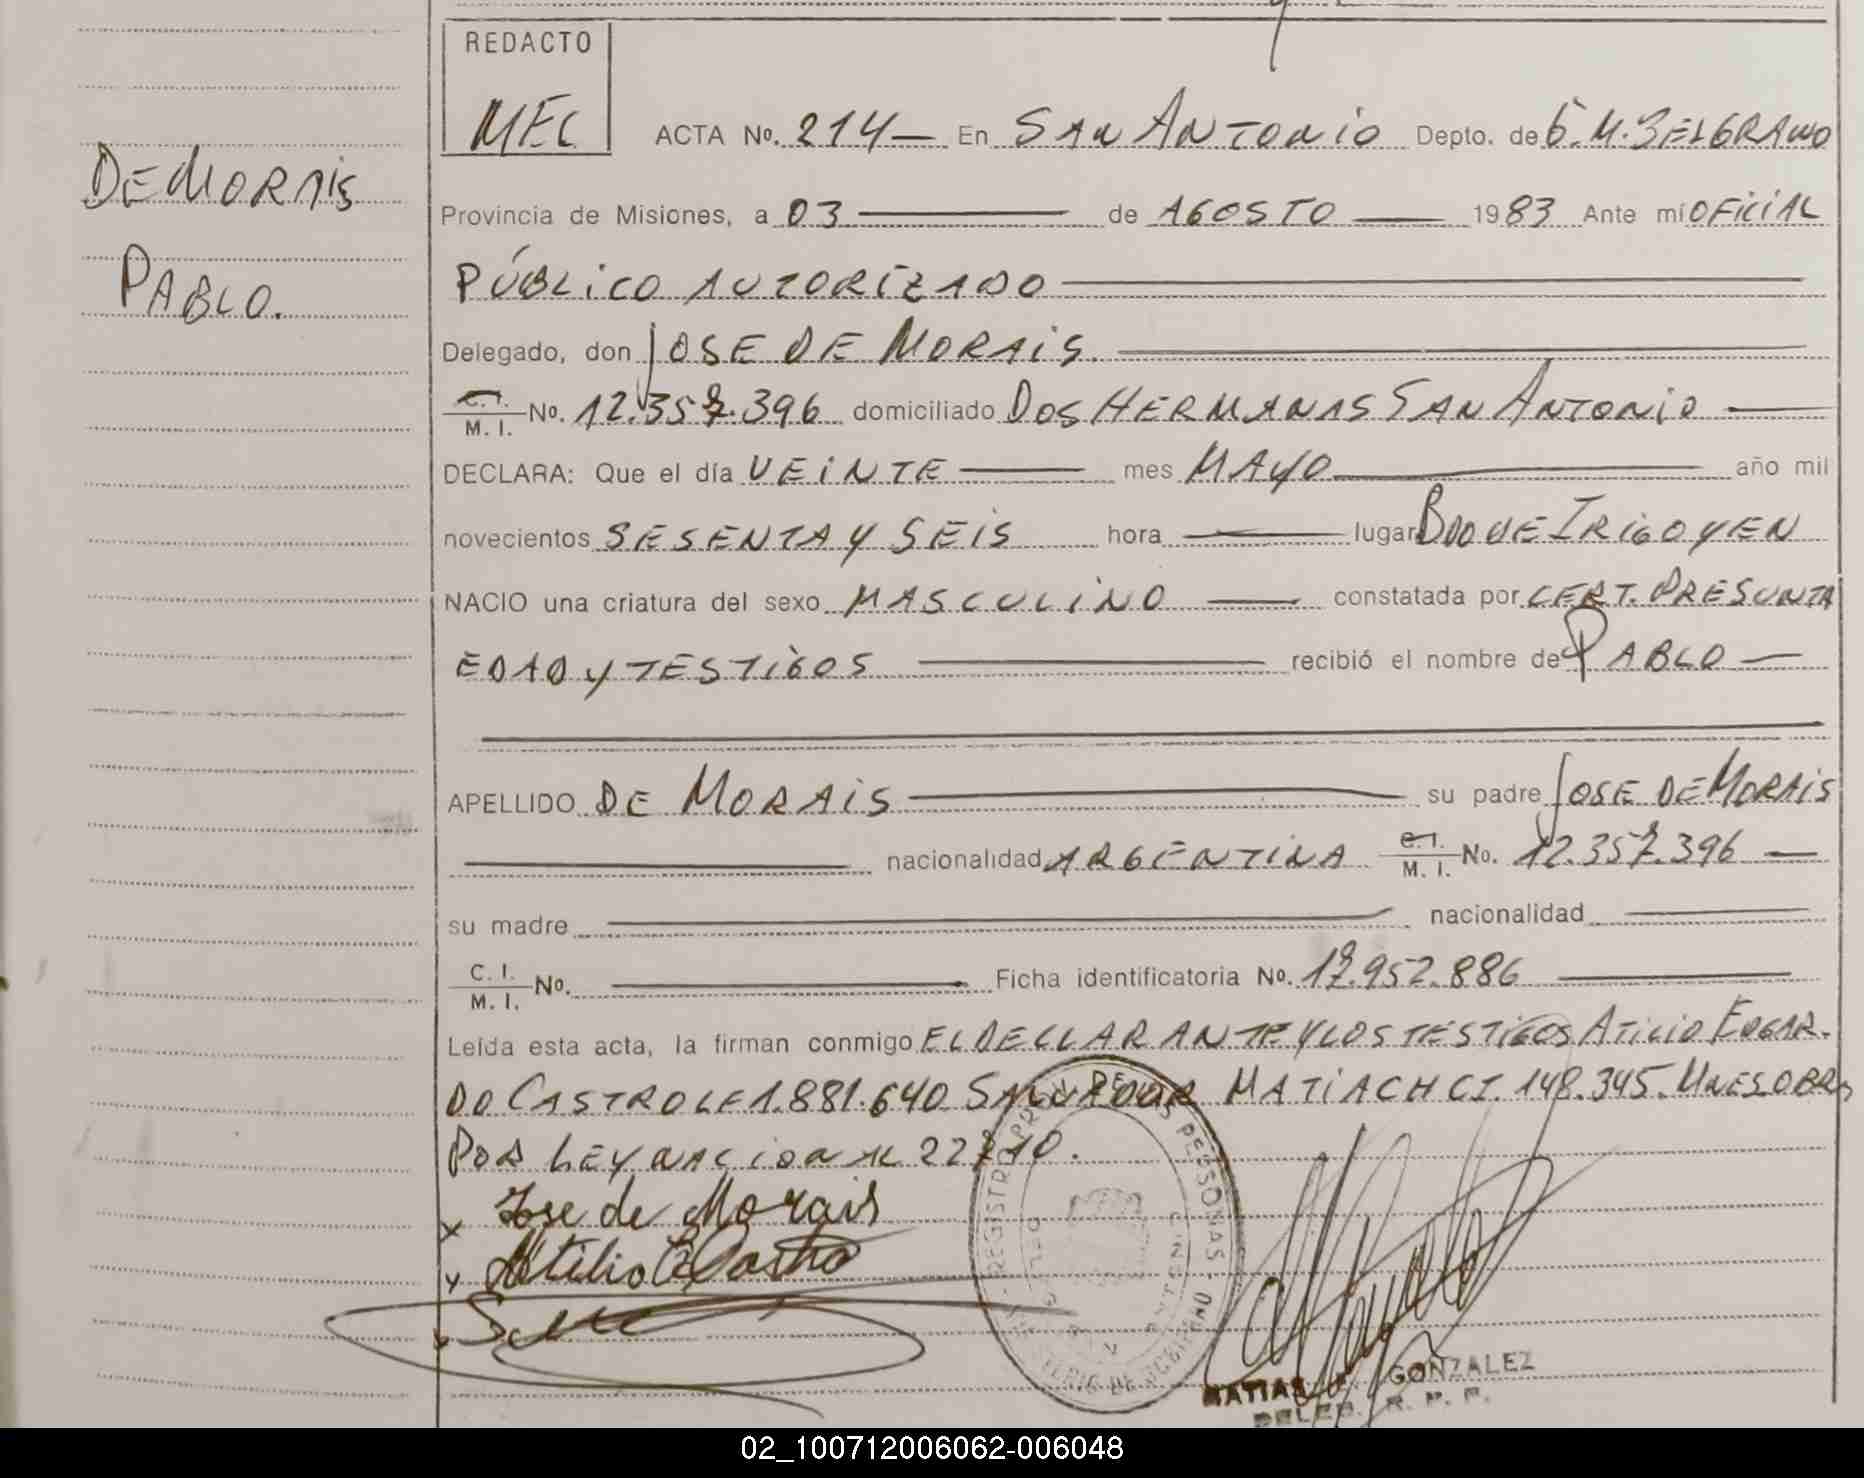 REDACTO
MEC
ACTA No. 214 — En SAN ANTONIO Depto. de G. M. BELGRANO
DE MORAIS
Provincia de Misiones, a 03 de AGOSTO 1983 Ante mí OFICIAL
PABLO.
PÚBLICO AUTORIZADO
Delegado, don JOSE DE MORAIS.
C. I. / M. I. No. 12.357.396 domiciliado DOS HERMANAS SAN ANTONIO —
DECLARA: Que el día VEINTE mes MAYO año mil
novecientos SESENTA Y SEIS hora — lugar BDO DE IRIGOYEN
NACIO una criatura del sexo MASCULINO — constatada por CERT. PRESUNTA
EDAD Y TESTIGOS recibió el nombre de PABLO —
APELLIDO DE MORAIS su padre JOSE DE MORAIS
nacionalidad ARGENTINA C. I. / M. I. No. 12.357.396 —
su madre — nacionalidad —
C. I. / M. I. No. — Ficha identificatoria No. 17.952.886 —
Leída esta acta, la firman conmigo EL DECLARANTE Y LOS TESTIGOS ATILIO EDGAR-
DO CASTRO LE 1.881.640 SALVADOR MATIACH CI. 148.345.
POR LEY NACIONAL 22710.
x Jose de Morais
x Atilio E Castro
REGISTRO PROV. DE LAS PERSONAS - MINISTERIO DE GOBIERNO
MATIAS GONZALEZ
DELEG. R. P. P.
02_100712006062-006048